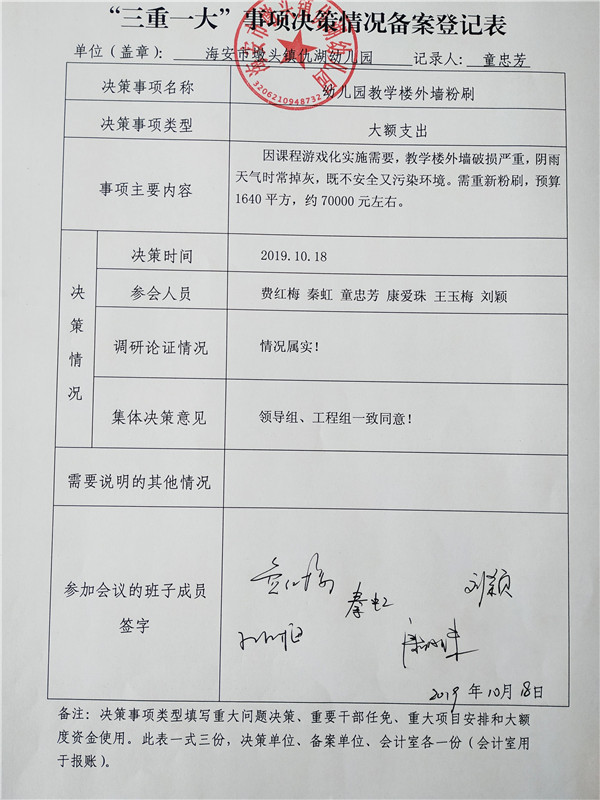 “三重一大”事项决策情况备案登记表
单位（盖章）： 海安市墩头镇仇湖幼儿园 记录人：童忠芳
决策事项名称 幼儿园教学楼外墙粉刷
决策事项类型 大额支出
事项主要内容
因课程游戏化实施需要，教学楼外墙破损严重，阴雨
天气时常掉灰，既不安全又污染环境。需重新粉刷，预算
1640平方，约70000元左右。
决策情况
决策时间 2019.10.18
参会人员 费红梅 秦虹 童忠芳 康爱珠 王玉梅 刘颖
调研论证情况 情况属实！
集体决策意见 领导组、工程组一致同意！
需要说明的其他情况
参加会议的班子成员
签字
秦虹
刘颖
2019年10月18日
备注：决策事项类型填写重大问题决策、重要干部任免、重大项目安排和大额
度资金使用。此表一式三份，决策单位、备案单位、会计室各一份（会计室用
于报账）。